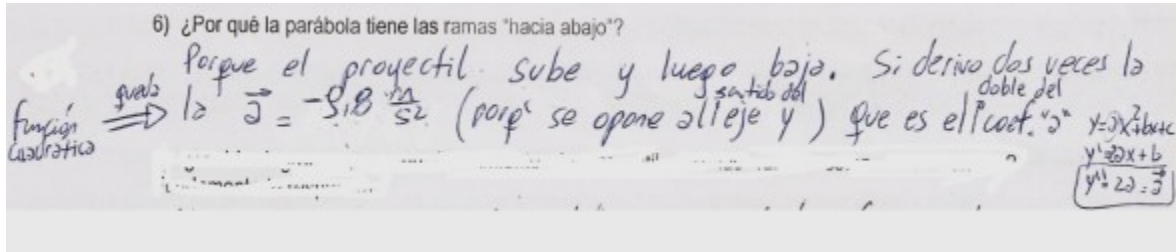 6) ¿Por qué la parábola tiene las ramas "hacia abajo"?
Porque el proyectil sube y luego baja. Si derivo dos veces la
función cuadrática queda ⇒ la a⃗ = -9,8 m/s² (porq' se opone al sentido del eje y) que es el doble del coef. "a"
y=ax²+bx+c
y'=2ax+b
y''=2a=a⃗